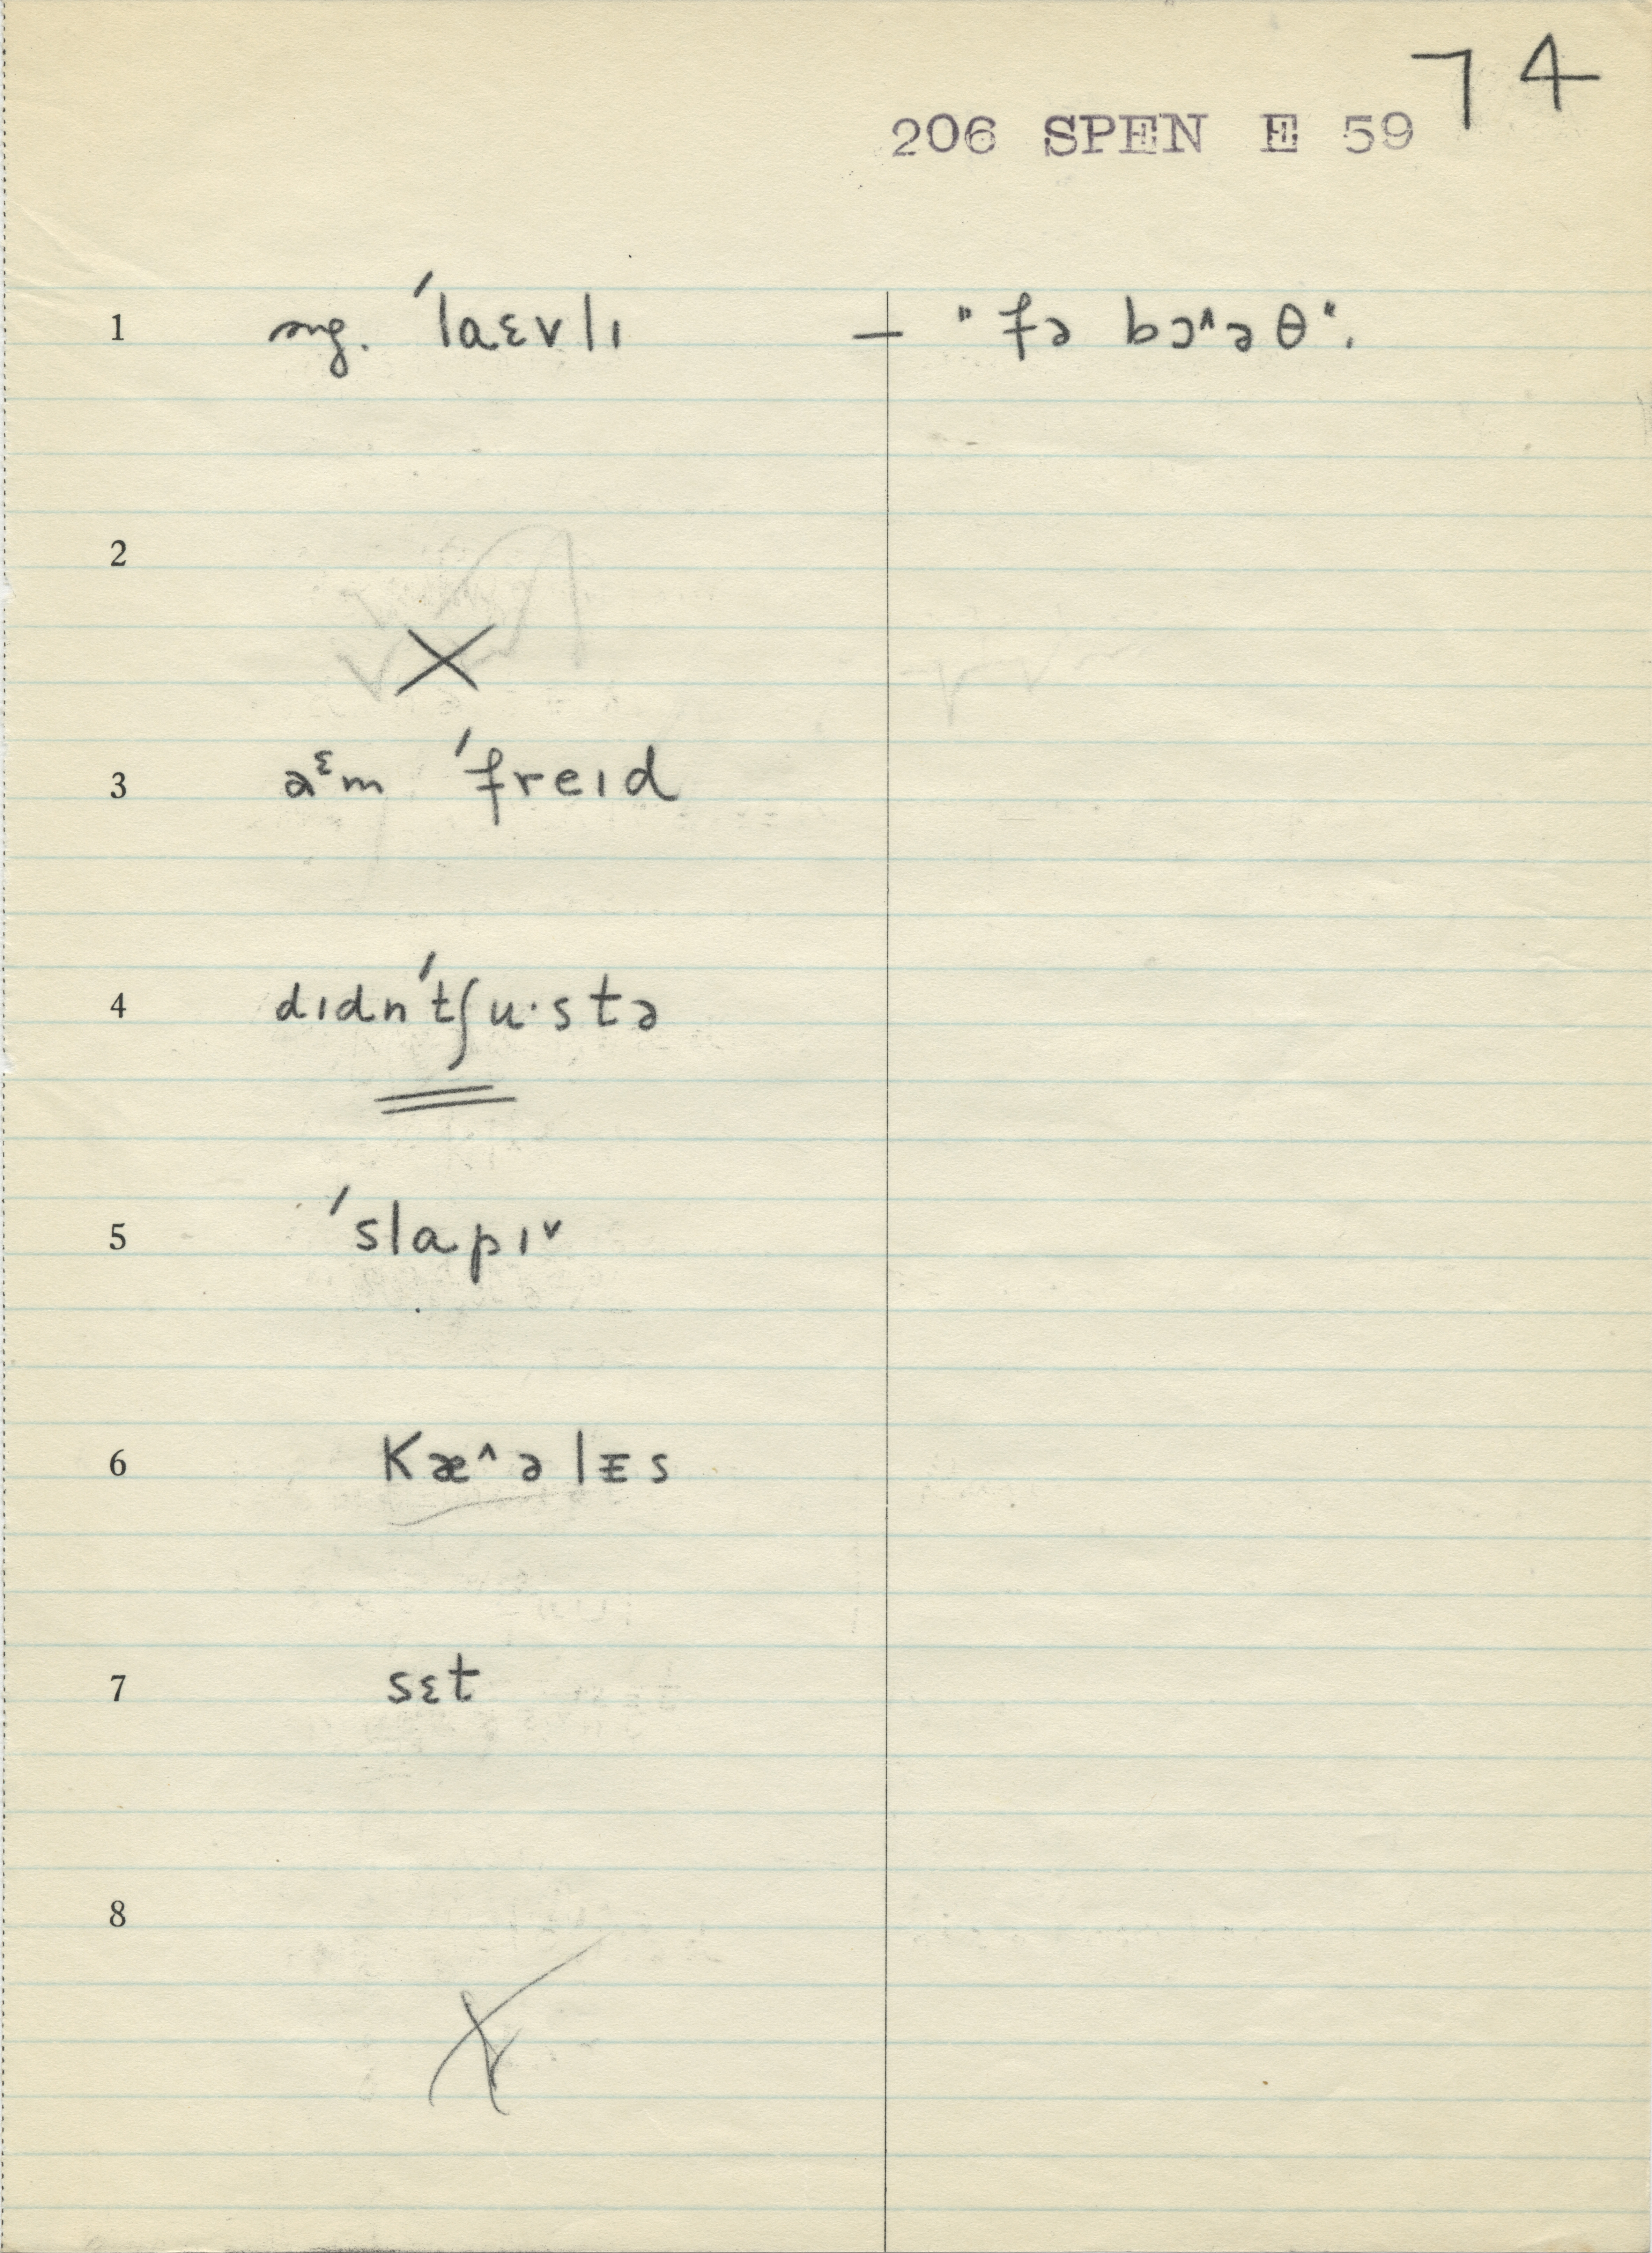 74
206 SPEN E 59
1 sug. ˈlaɛvlɪ — "fə bɔ^əθ".
2
X
3 a^ɛm ˈfreɪd
4 dɪdnˈtʃu·stə
5 ˈslapɪ^v
6 Kæ^əlᵻs
7 sɛt
8
X